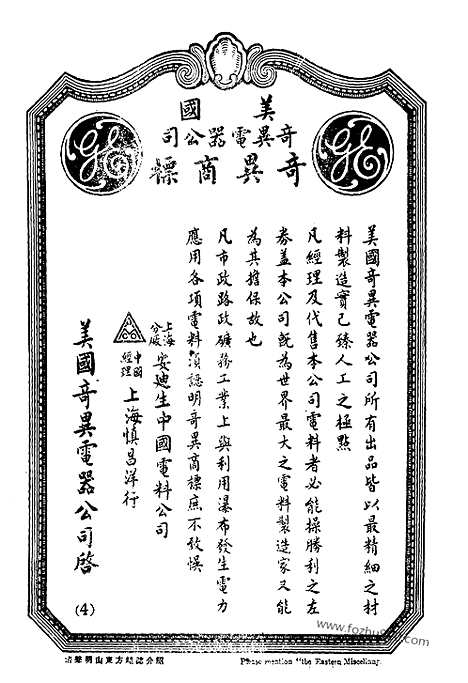 美國
奇異電器公司
奇異商標
GE
GE
美國奇異電器公司所有出品皆以最精細之材
料製造實已臻人工之極點
凡經理及代售本公司電料者必能操勝利之左
券蓋本公司旣為世界最大之電料製造家又能
為其擔保故也
凡市政路政礦務工業上與利用瀑布發生電力
應用各項電料須認明奇異商標庶不致悞
上海分廠 安迪生中國電料公司
中國經理 上海慎昌洋行
美國奇異電器公司啓
(4)
請聲明由東方雜誌介紹
Please mention "the Eastern Miscellany
www.fozhu